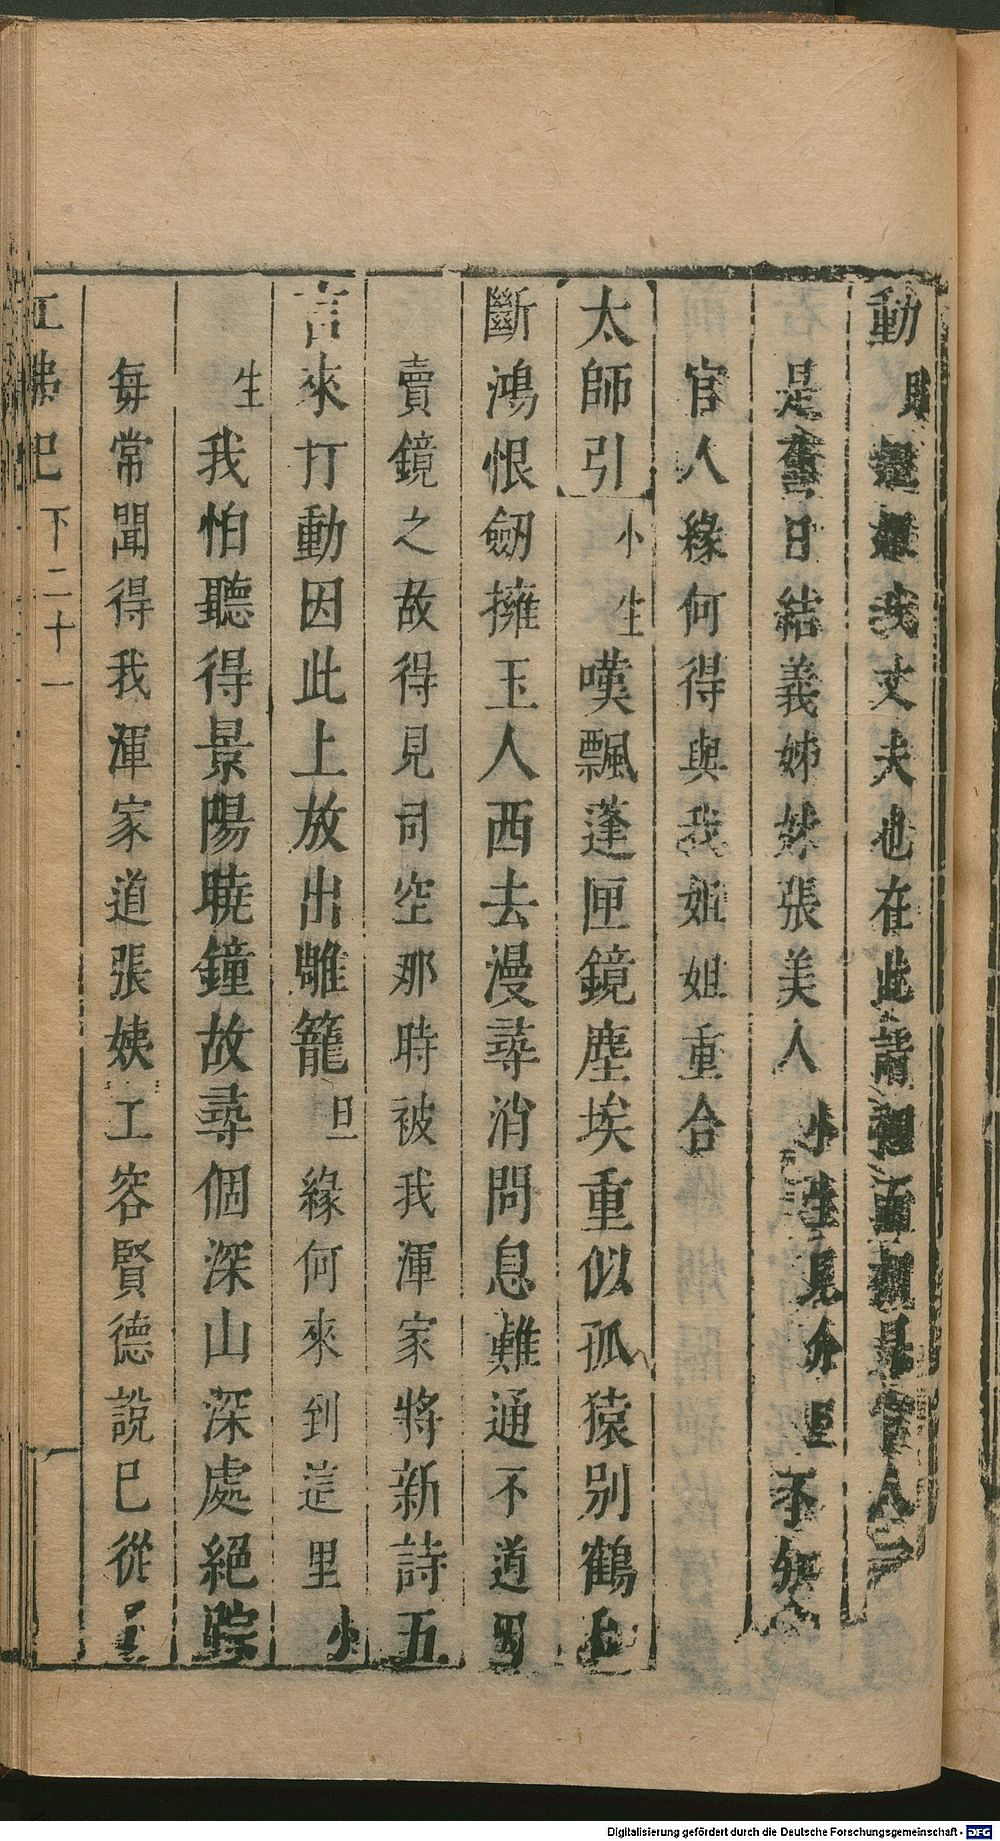 動 貼 我丈夫也在此 官人
是舊日結義姊妹張美人 小生見介 旦 不知
官人緣何得與我姐姐重合
太師引 小生 嘆飄蓬匣鏡塵埃重似孤猿別鶴
斷鴻恨劒擁玉人西去漫尋消問息難通不道因
賣鏡之故得見司空那時被我渾家將新詩五
言來打動因此上放出雕籠 旦 緣何來到這里 小
生 我怕聽得景陽曉鐘故尋個深山深處絕踪
每常聞得我渾家道張姨工容賢德說已從
紅拂記 下二十一
Digitalisierung gefördert durch die Deutsche Forschungsgemeinschaft - DFG